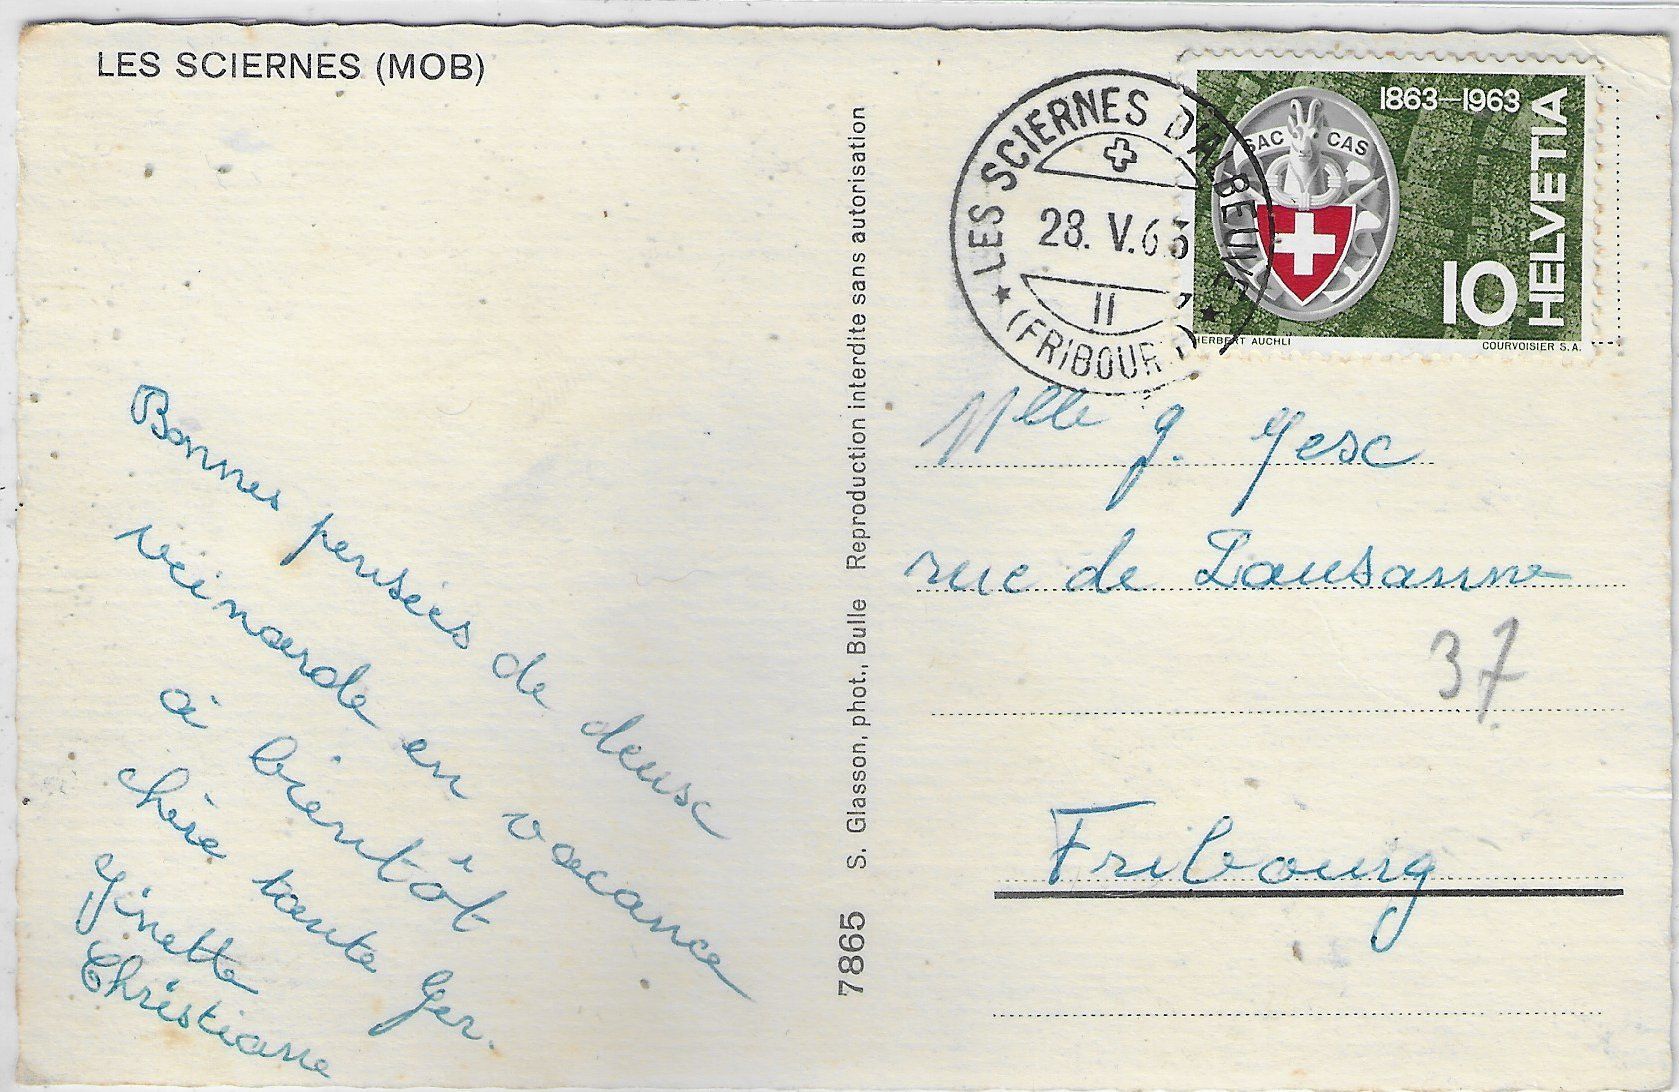 LES SCIERNES (MOB)
Bonnes pensées de deux
veinarde en vacance
à bientôt
chère tante Ger.
Ginette
Christiane
7865 S. Glasson, phot., Bulle Reproduction interdite sans autorisation
LES SCIERNES D'ALBEUVE
28. V. 63
11
(FRIBOURG)
1863–1963
SAC CAS
HELVETIA
10
HERBERT AUCHLI
COURVOISIER S.A.
Mlle G. Gesc
rue de Lausanne
37
Fribourg